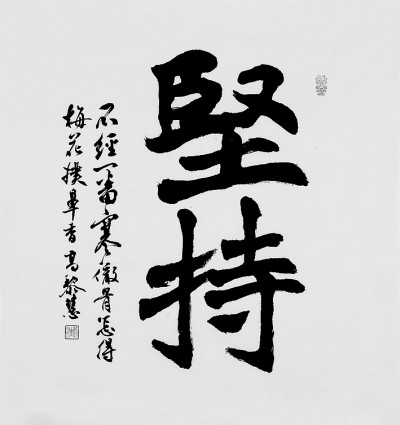 堅持
不經一番寒徹骨怎得
梅花撲鼻香 高黎慧